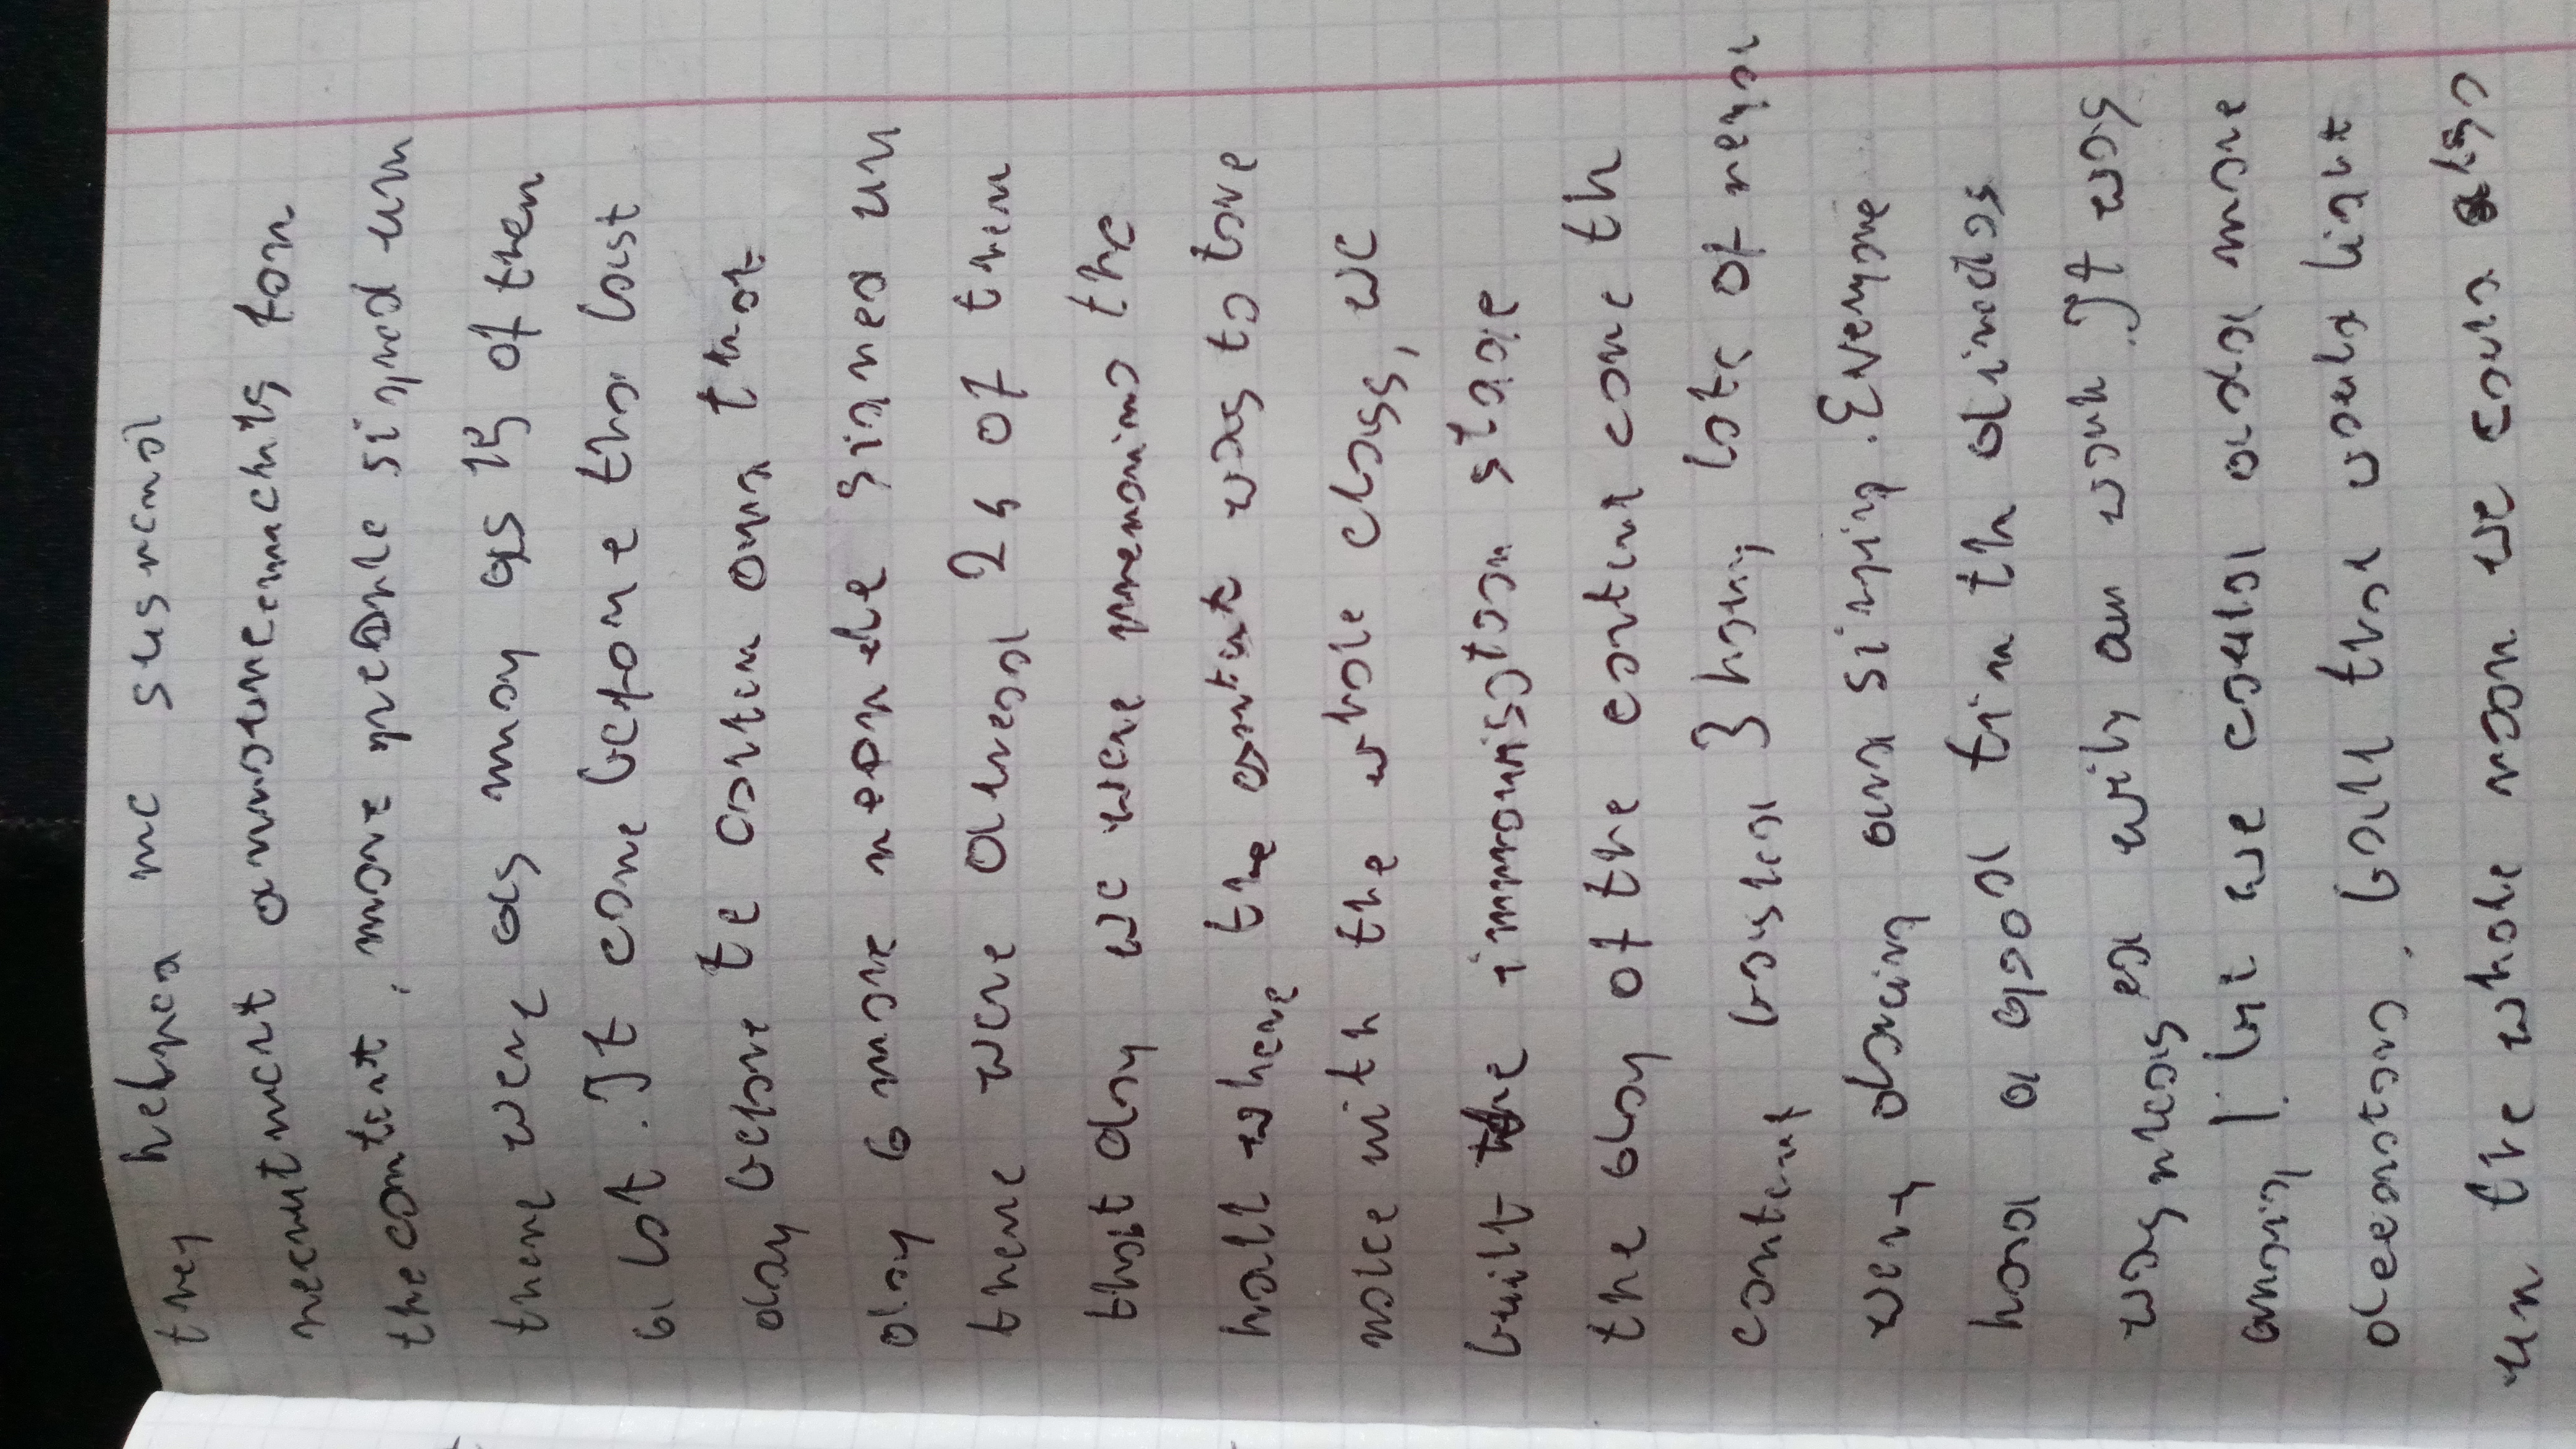 they helped me suspend
recrutment announcemachts for
the contert, more people signed um
there were as many as 15 of them
a lot. It came before the last
day before te conten and that
day 6 more people signed up
there were alread 24 of them
that day we were preparing the
hall where the contert was to tare
place with the whole class, we
built the improvisaton stage
the day of the contert came th
contert lasted 3 hour, lots of peopl
were dancing and singing. Everyone
had a good tim th
was pleased with our work. It was
but we could add more
decorations. ball that would light
up the whole room we could also